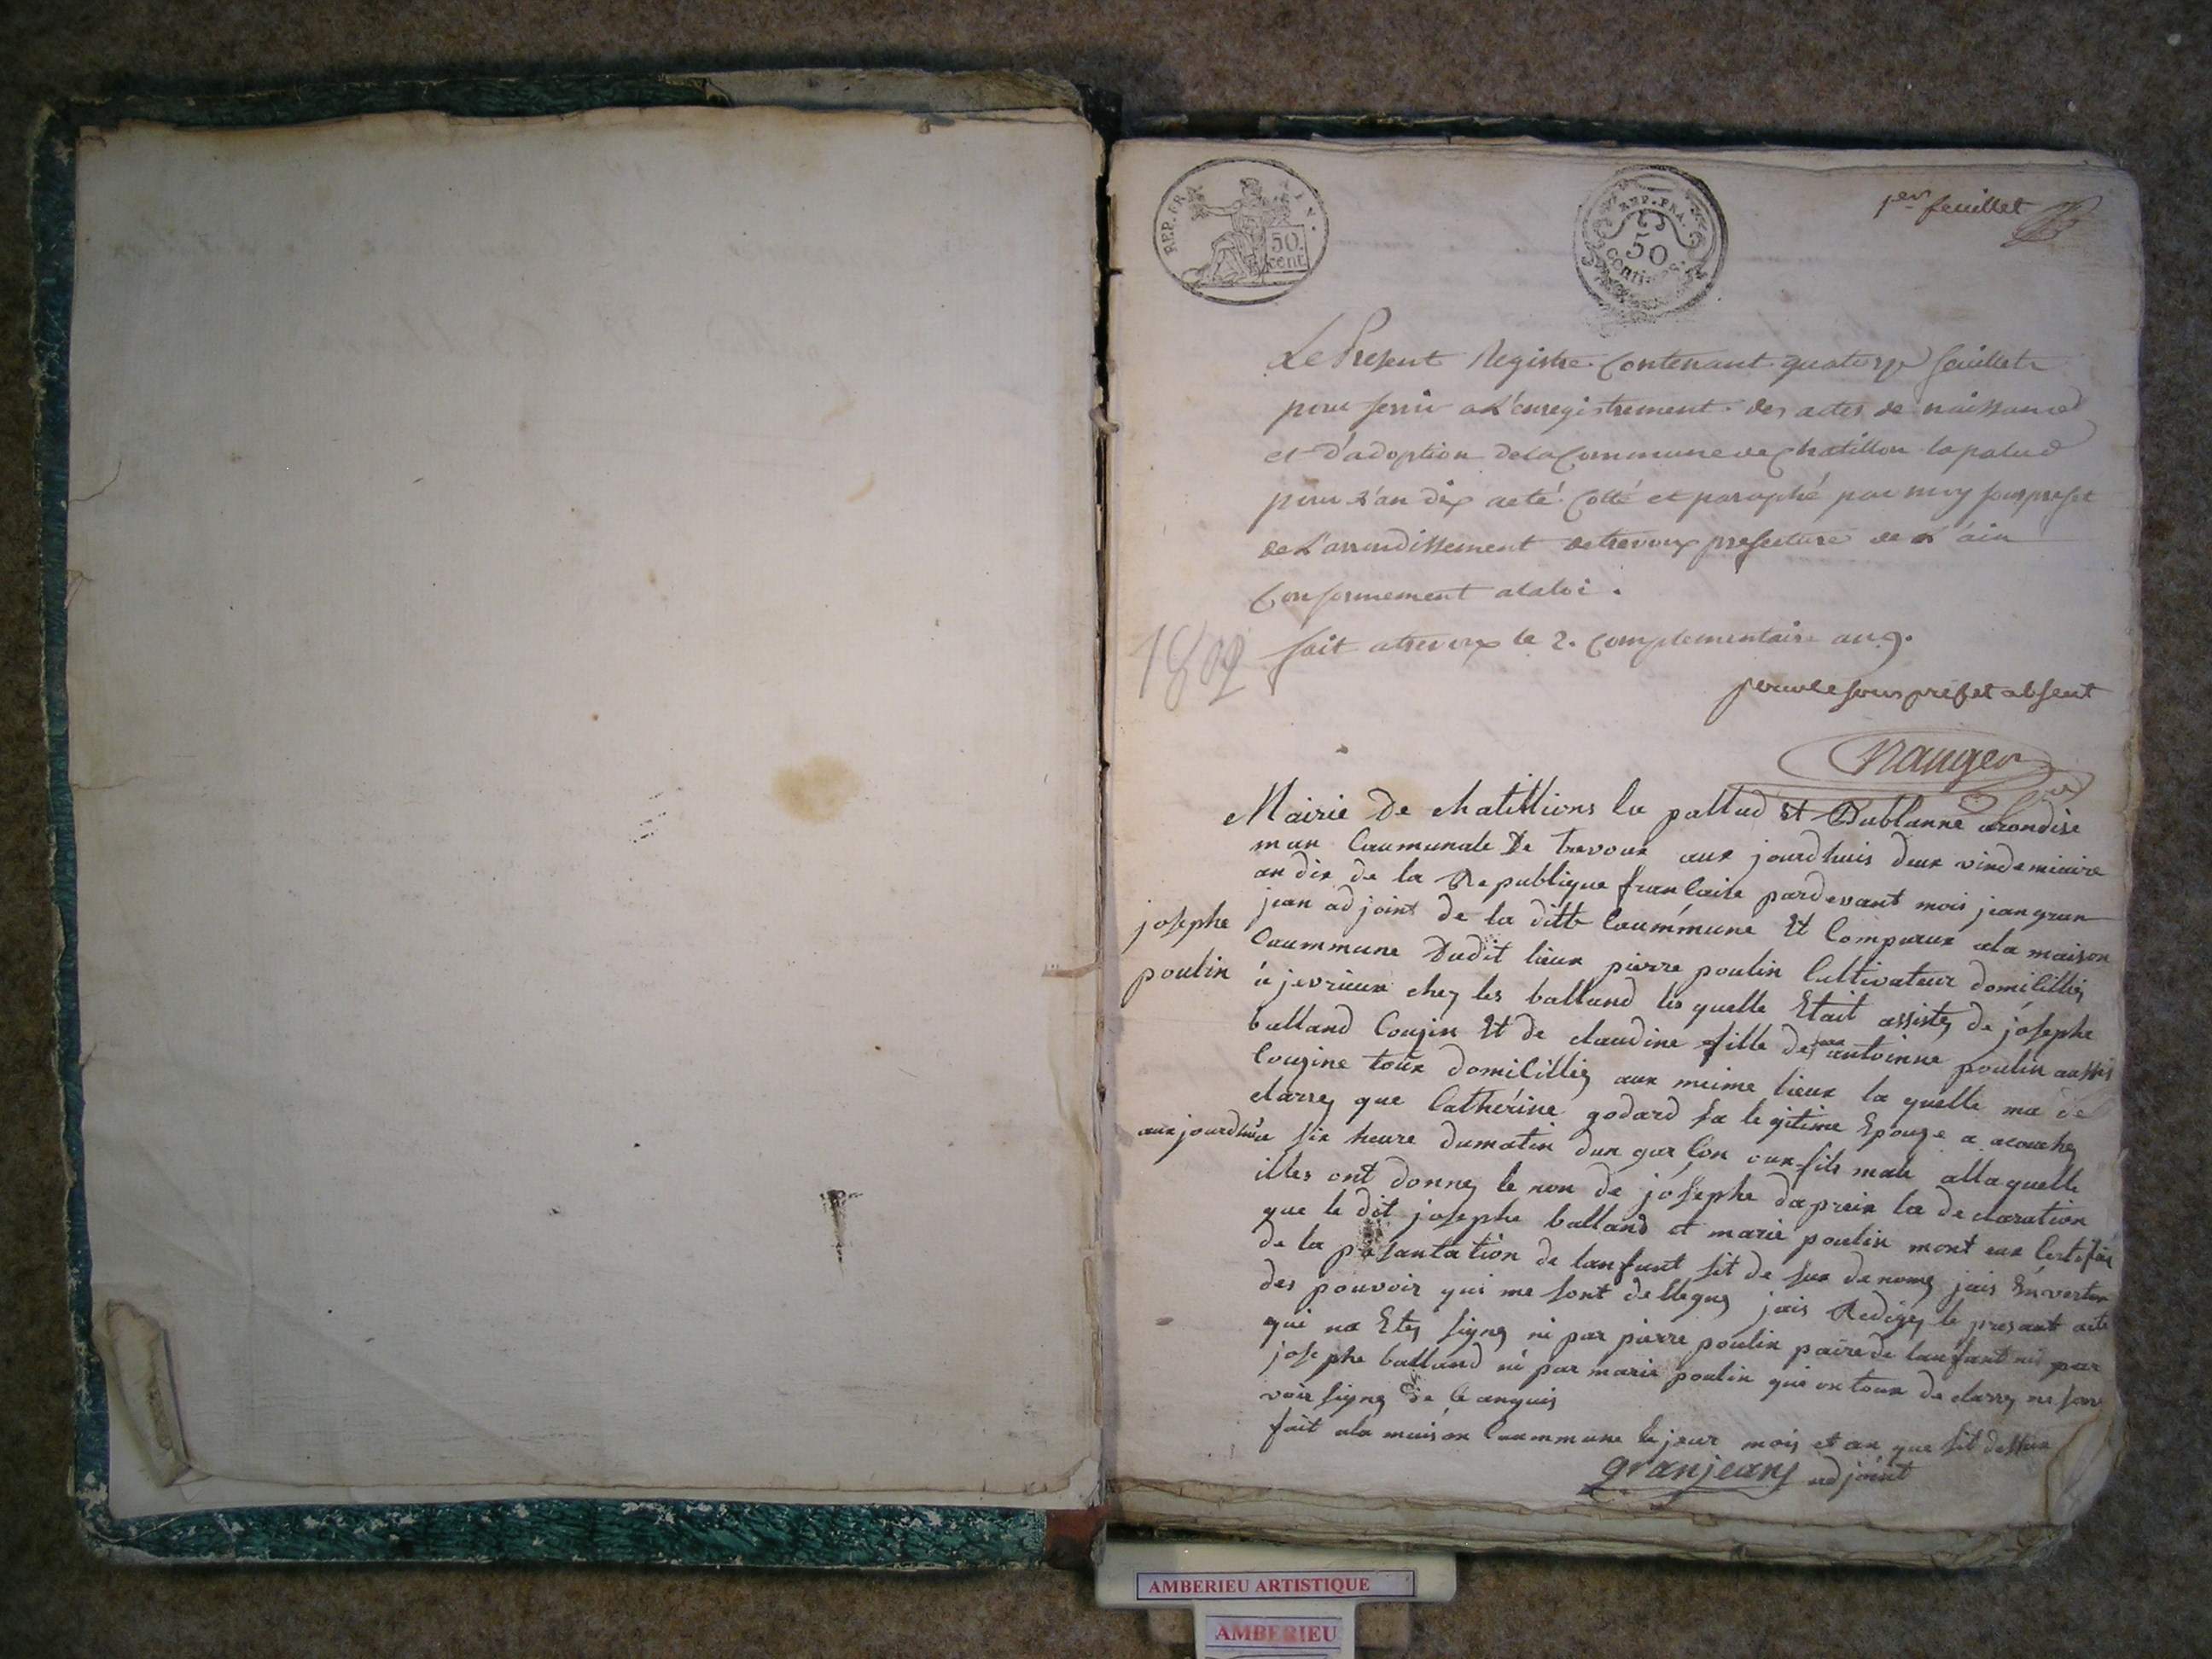 REP. FRA
50
cent
REP. FRA.
50
centimes
1er feuillet
Le Present Registre Contenant quatorze feuillets
pour servir a L'enregistrement des actes de naissance
et d'adoption de la Commune de Chatillon lapalud
pour L'an dix aeté Cotté et paraphé par moy sousprefet
de L'arrondissement de trevoux prefecture de L'ain
Conformement alaloi.
1802
fait a trevoux le 2. complementaire an 9.
pour le sous préfet absent
Mairie De chatillions la pallud Et Bublanne arondise
man Coumunale De Trevoux aux jourdhuis deux vindemiaire
an dix de la Republique franCaise pardevant mois jean gran
jean adjoint de la ditte Coummune Et Comparux ala maison
josephe
poulin
Coummune Dudit lieux pierre poulin Cultivateur domiCilliez
à jevrieux chez les balland les quelle Etait assistez de josephe
balland Couzin Et de claudine fille de antoinne poulin aussis
Couzine toux domiCilliez aux meime lieux la quelle ma de
clarrez que Cathérine godard sa legitime Epouze a acouchez
aux jourdhuis a six heure dumatin dun garCon oux fils male allaquelle
illes ont donnez le non de josephe daprein la declaration
que le dit josephe balland et marie poulin mont eux Certifiée
de la presantation de lanfant sit de sux denomez jais Envertux
des pouvoir qui me sont delleguez jais Redigez le presant acte
qui na Etez signez ni par pierre poulin paire de lanfant ni par
josephe balland ni par marie poulin qui on toux declarrez ne sav
voir signez de Ce anquis
fait ala maison Coummune le jour mois et an que sit dessux
granjean adjoint
AMBERIEU ARTISTIQUE
AMBERIEU